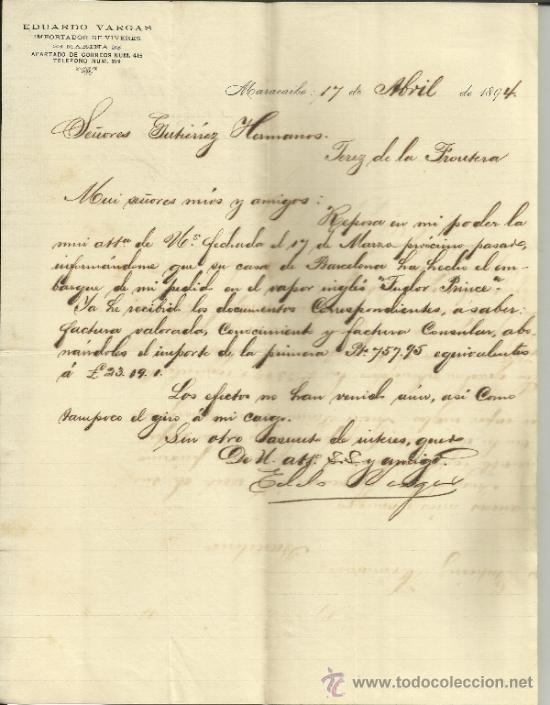 EDUARDO VARGAS
IMPORTADOR DE VIVERES
MARINA
APARTADO DE CORREOS NUM. 415
TELEFONO NUM.
Maracaibo: 17 de Abril de 1894.
Señores Gutiérrez Hermanos.
Jerez de la Frontera
Mui señores mios y amigos:
Reposa en mi poder la
mui atta de Us fechada el 17 de Marzo próximo pasado,
informándome que su casa de Barcelona ha hecho el em-
barque de mi pedido en el vapor inglés "Prince"
Ya he recibido los documentos correspondientes, a saber:
factura valorada, Conocimient y factura Consular, abo-
nándoles el importe de la primera Pts 757.95 equivalentes
á £23.19.1.
Los efectos no han venido aún, así como
tampoco el giro á mi cargo.
Sin otro asunto de interes, quedo
De U. atto. S.S. y amigo.
Eddo Vargas
www.todocoleccion.net